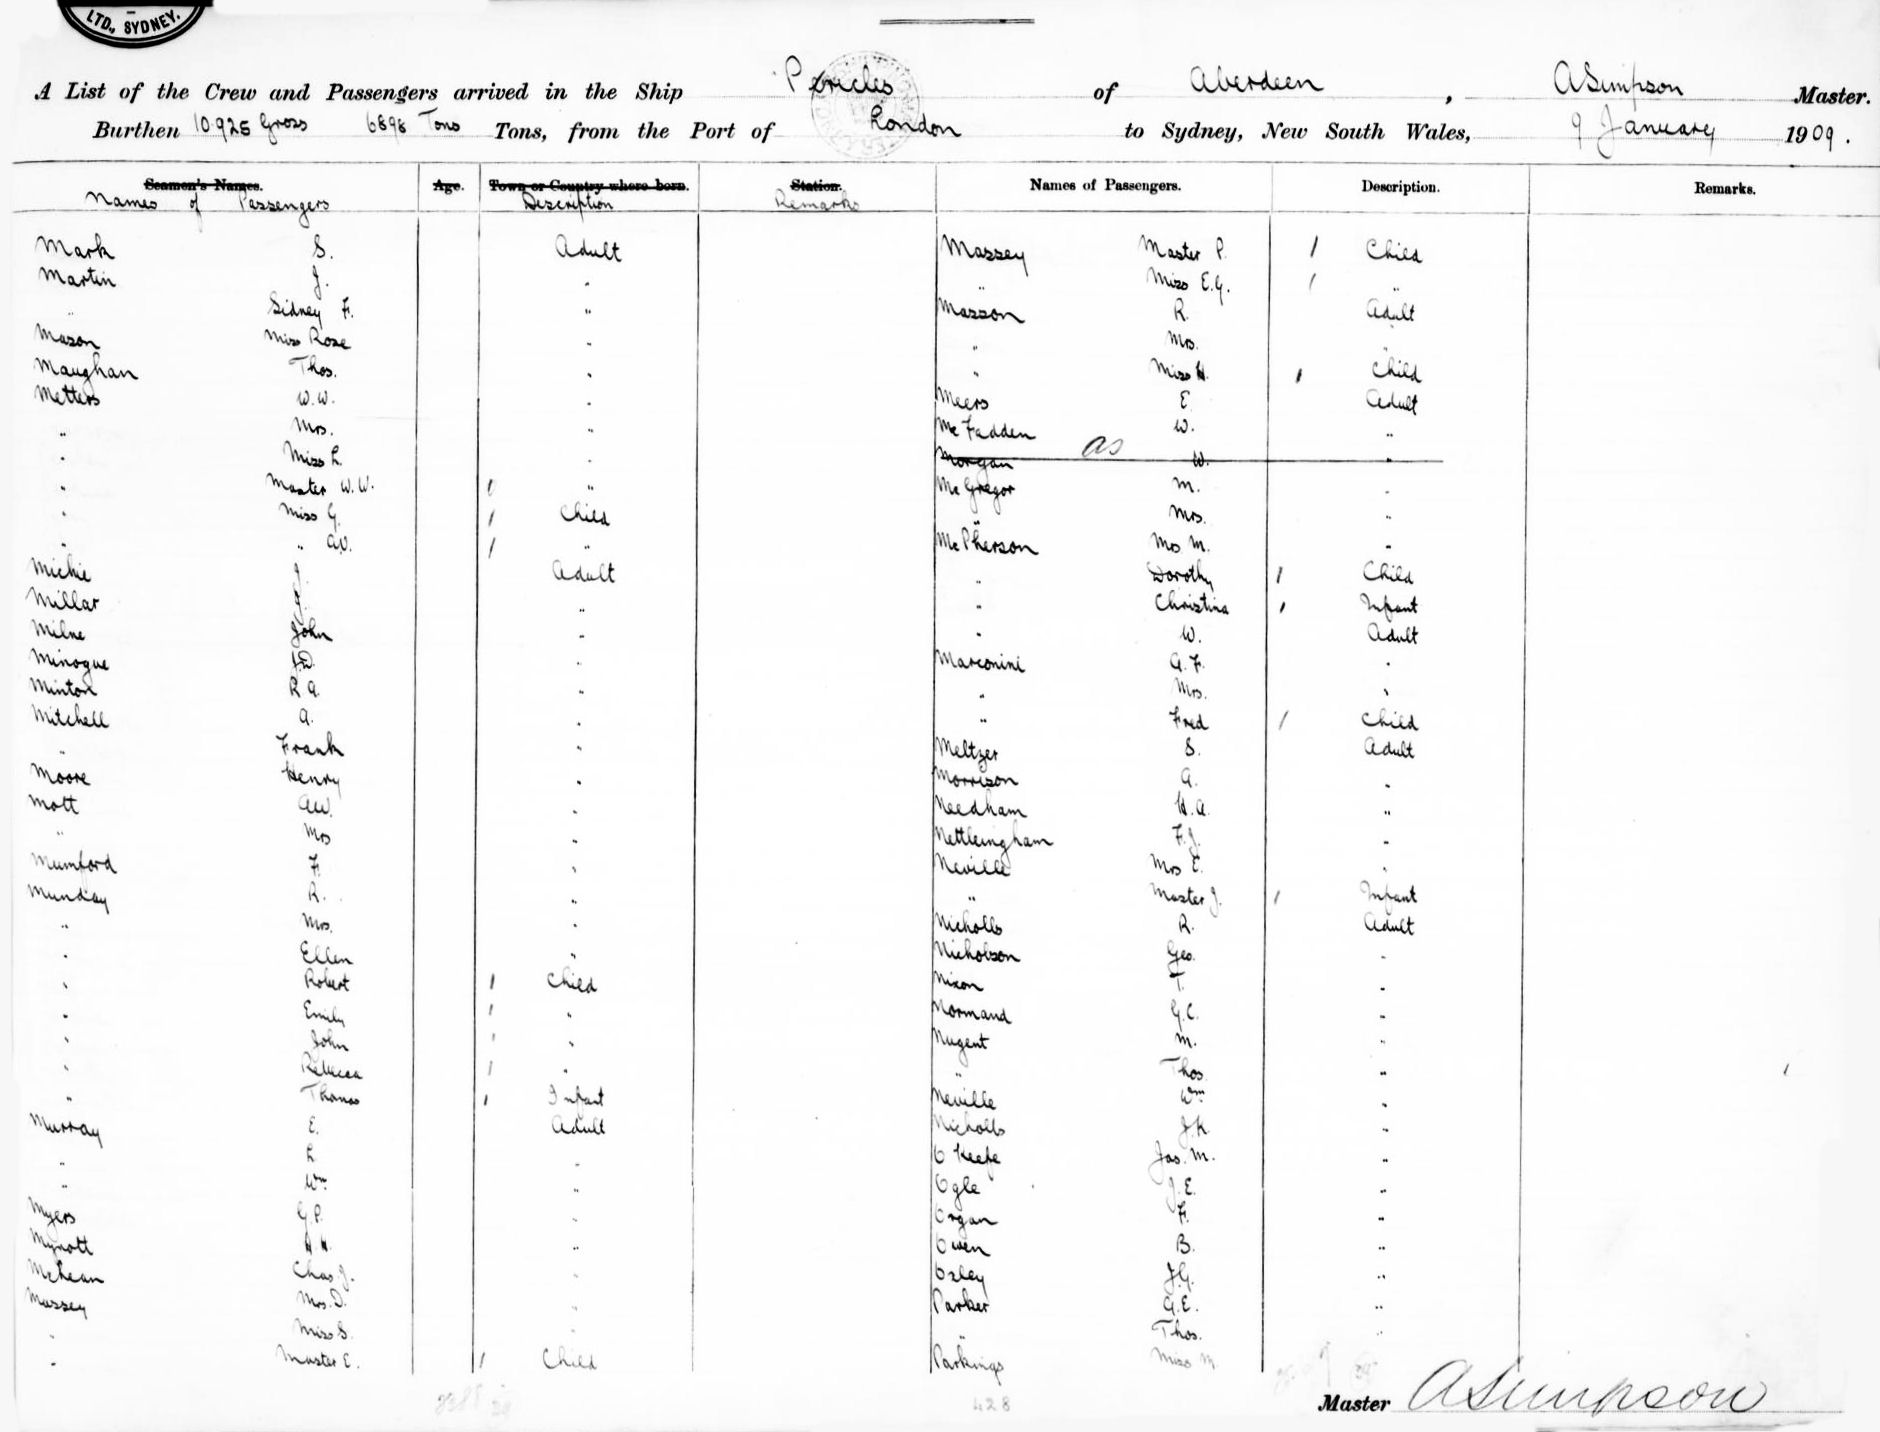 LTD., SYDNEY.
A List of the Crew and Passengers arrived in the Ship Pericles of Aberdeen, ASimpson Master.
Burthen 10.925 Gross 6898 Tons Tons, from the Port of London to Sydney, New South Wales, 9 January 1909.
Seamen's Names. Age. Town or Country where born. Station. Names of Passengers. Description. Remarks.
Names of Passengers Description Remarks
Mark S. Adult
Martin J. "
" Sidney F. "
Mason Miss Rose "
Maughan Thos. "
Metters W.W. "
" Mrs. "
" Miss L. "
" Master W.W. "
" Miss G. Child
" " A.V. "
Michie J. Adult
Millar J. "
Milne John "
Minogue J.D. "
Minton R A. "
Mitchell A. "
" Frank "
Moore Henry "
Mott AW. "
" Mrs "
Mumford F. "
Munday R. "
" Mrs. "
" Ellen "
" Robert Child
" Emily "
" John "
" Rebecca "
" Thomas Infant
Murray E. Adult
" L "
" Wm "
Myers G.P. "
Mynott H.H. "
McLean Chas. J. "
Massey Mrs. D. "
" Miss S. "
" Master E. Child
Massey Master P. Child
" Miss E.G. "
Masson R. Adult
" Mrs. "
" Miss H. Child
Meers E. Adult
McFadden W. "
Morgan as W. "
McGregor M. "
" Mrs. "
McPherson Mrs M. "
" Dorothy Child
" Christina Infant
" W. Adult
Marconini A.F. "
" Mrs. "
" Fred Child
Meltzer S. Adult
Morrison A. "
Needham H.A. "
Nettleingham F.J. "
Neville Mrs E. "
" Master J. Infant
Nicholls R. Adult
Nicholson Geo. "
Nixon T. "
Normand G.C. "
Nugent M. "
" Thos. "
Neville Wm "
Nicholls J.K. "
O Keefe Jas. M. "
Ogle J.E. "
Organ F. "
Owen B. "
Oxley J.G. "
Parker G.E. "
" Thos. "
Parkings Miss M.
428
Master ASimpson